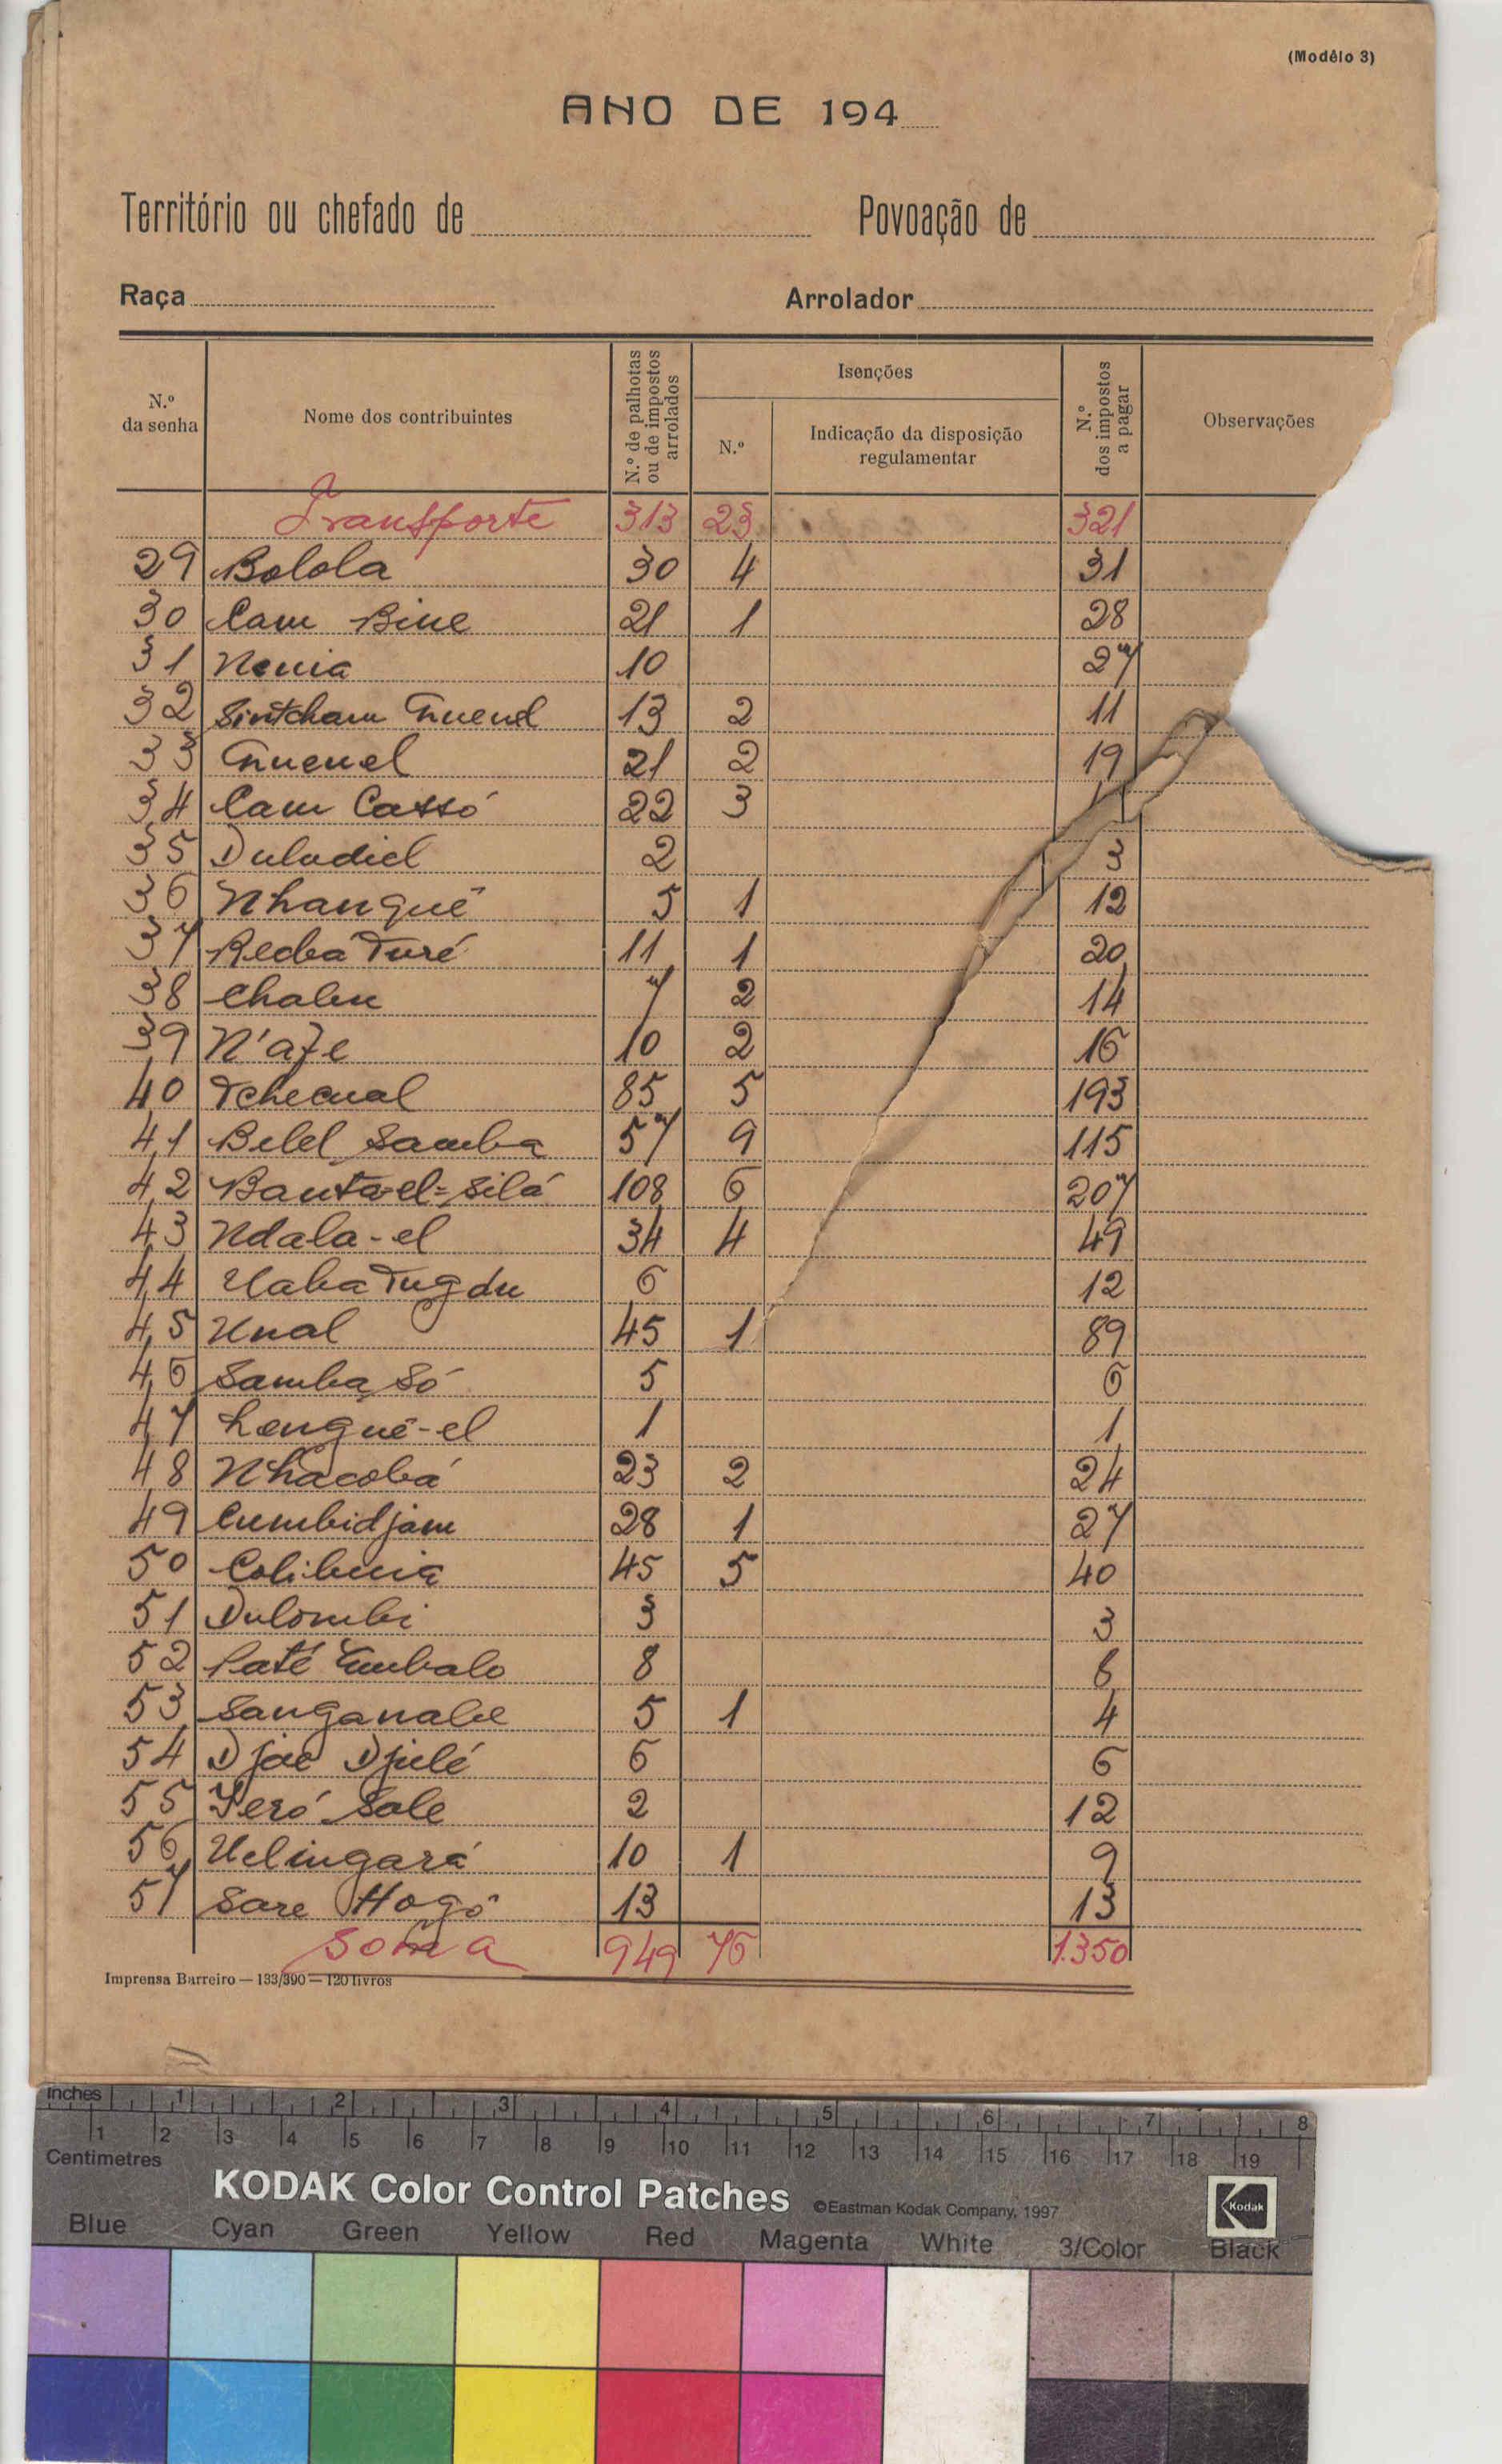 (Modêlo 3)
ANO DE 194
Território ou chefado de Povoação de
Raça Arrolador
N.º da senha Nome dos contribuintes N.º de palhotas ou de impostos arrolados Isenções N.º Indicação da disposição regulamentar N.º dos impostos a pagar Observações
Transporte 313 23 321
29 Bolola 30 4 31
30 Cam Bine 21 1 28
31 Nenia 10 27
32 Sintcham Guenel 13 2 11
33 Guenel 21 2 19
34 Cam Cassó 22 3
35 Duludiel 2 3
36 Nhanguê 5 1 12
37 Recba Turé 11 1 20
38 Chalen 7 2 14
39 N'aze 10 2 16
40 Tchecual 85 5 193
41 Belel Samba 57 9 115
42 Banta-el=Silá 108 6 207
43 Ndala-el 34 4 49
44 Uaba Tugdu 6 12
45 Unal 45 1 89
46 Samba Só 5 6
47 Lenguê-el 1 1
48 Nhacobá 23 2 24
49 Cumbidjam 28 1 27
50 Colibuia 45 5 40
51 Dulombi 3 3
52 Paté Embalo 8 8
53 Sanganabe 5 1 4
54 Djae Djulé 6 6
55 Yeró Sale 2 12
56 Uelingará 10 1 9
57 Sare Hogó 13 13
Soma 949 76 1.350
Imprensa Barreiro — 133/390 — 120 livros
inches 1 2 3 4 5 6 7 8
1 2 3 4 5 6 7 8 9 10 11 12 13 14 15 16 17 18 19
Centimetres
KODAK Color Control Patches ©Eastman Kodak Company, 1997 Kodak
Blue Cyan Green Yellow Red Magenta White 3/Color Black